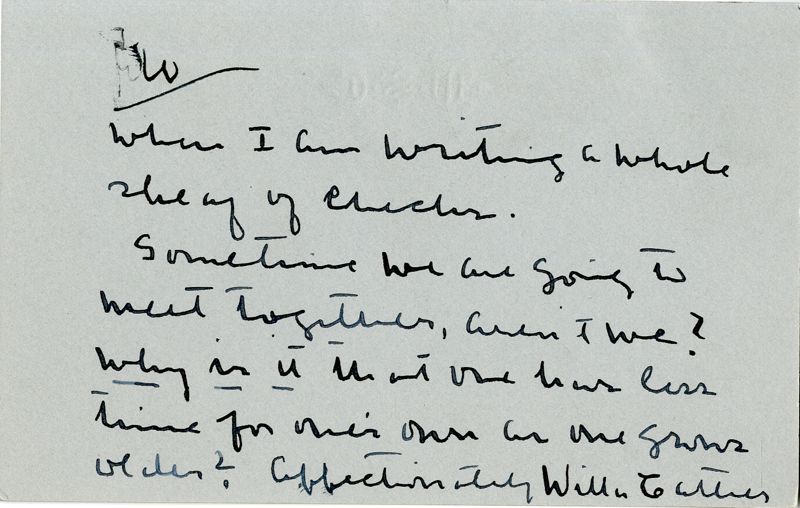 when I am writing a whole
sheaf of checks.
Sometime we are going to
meet together, aren't we?
Why is it that one has less
time for one's own as one grows
older? Affectionately Willa Cather